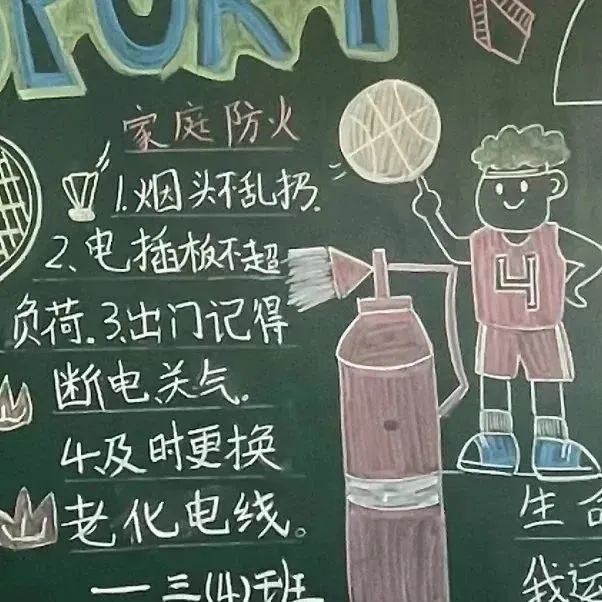 SPORT
家庭防火
1.烟头不乱扔.
2、电插板不超
负荷.3.出门记得
断电关气。
4及时更换
老化电线。
一三(4)班
4
生命
我运